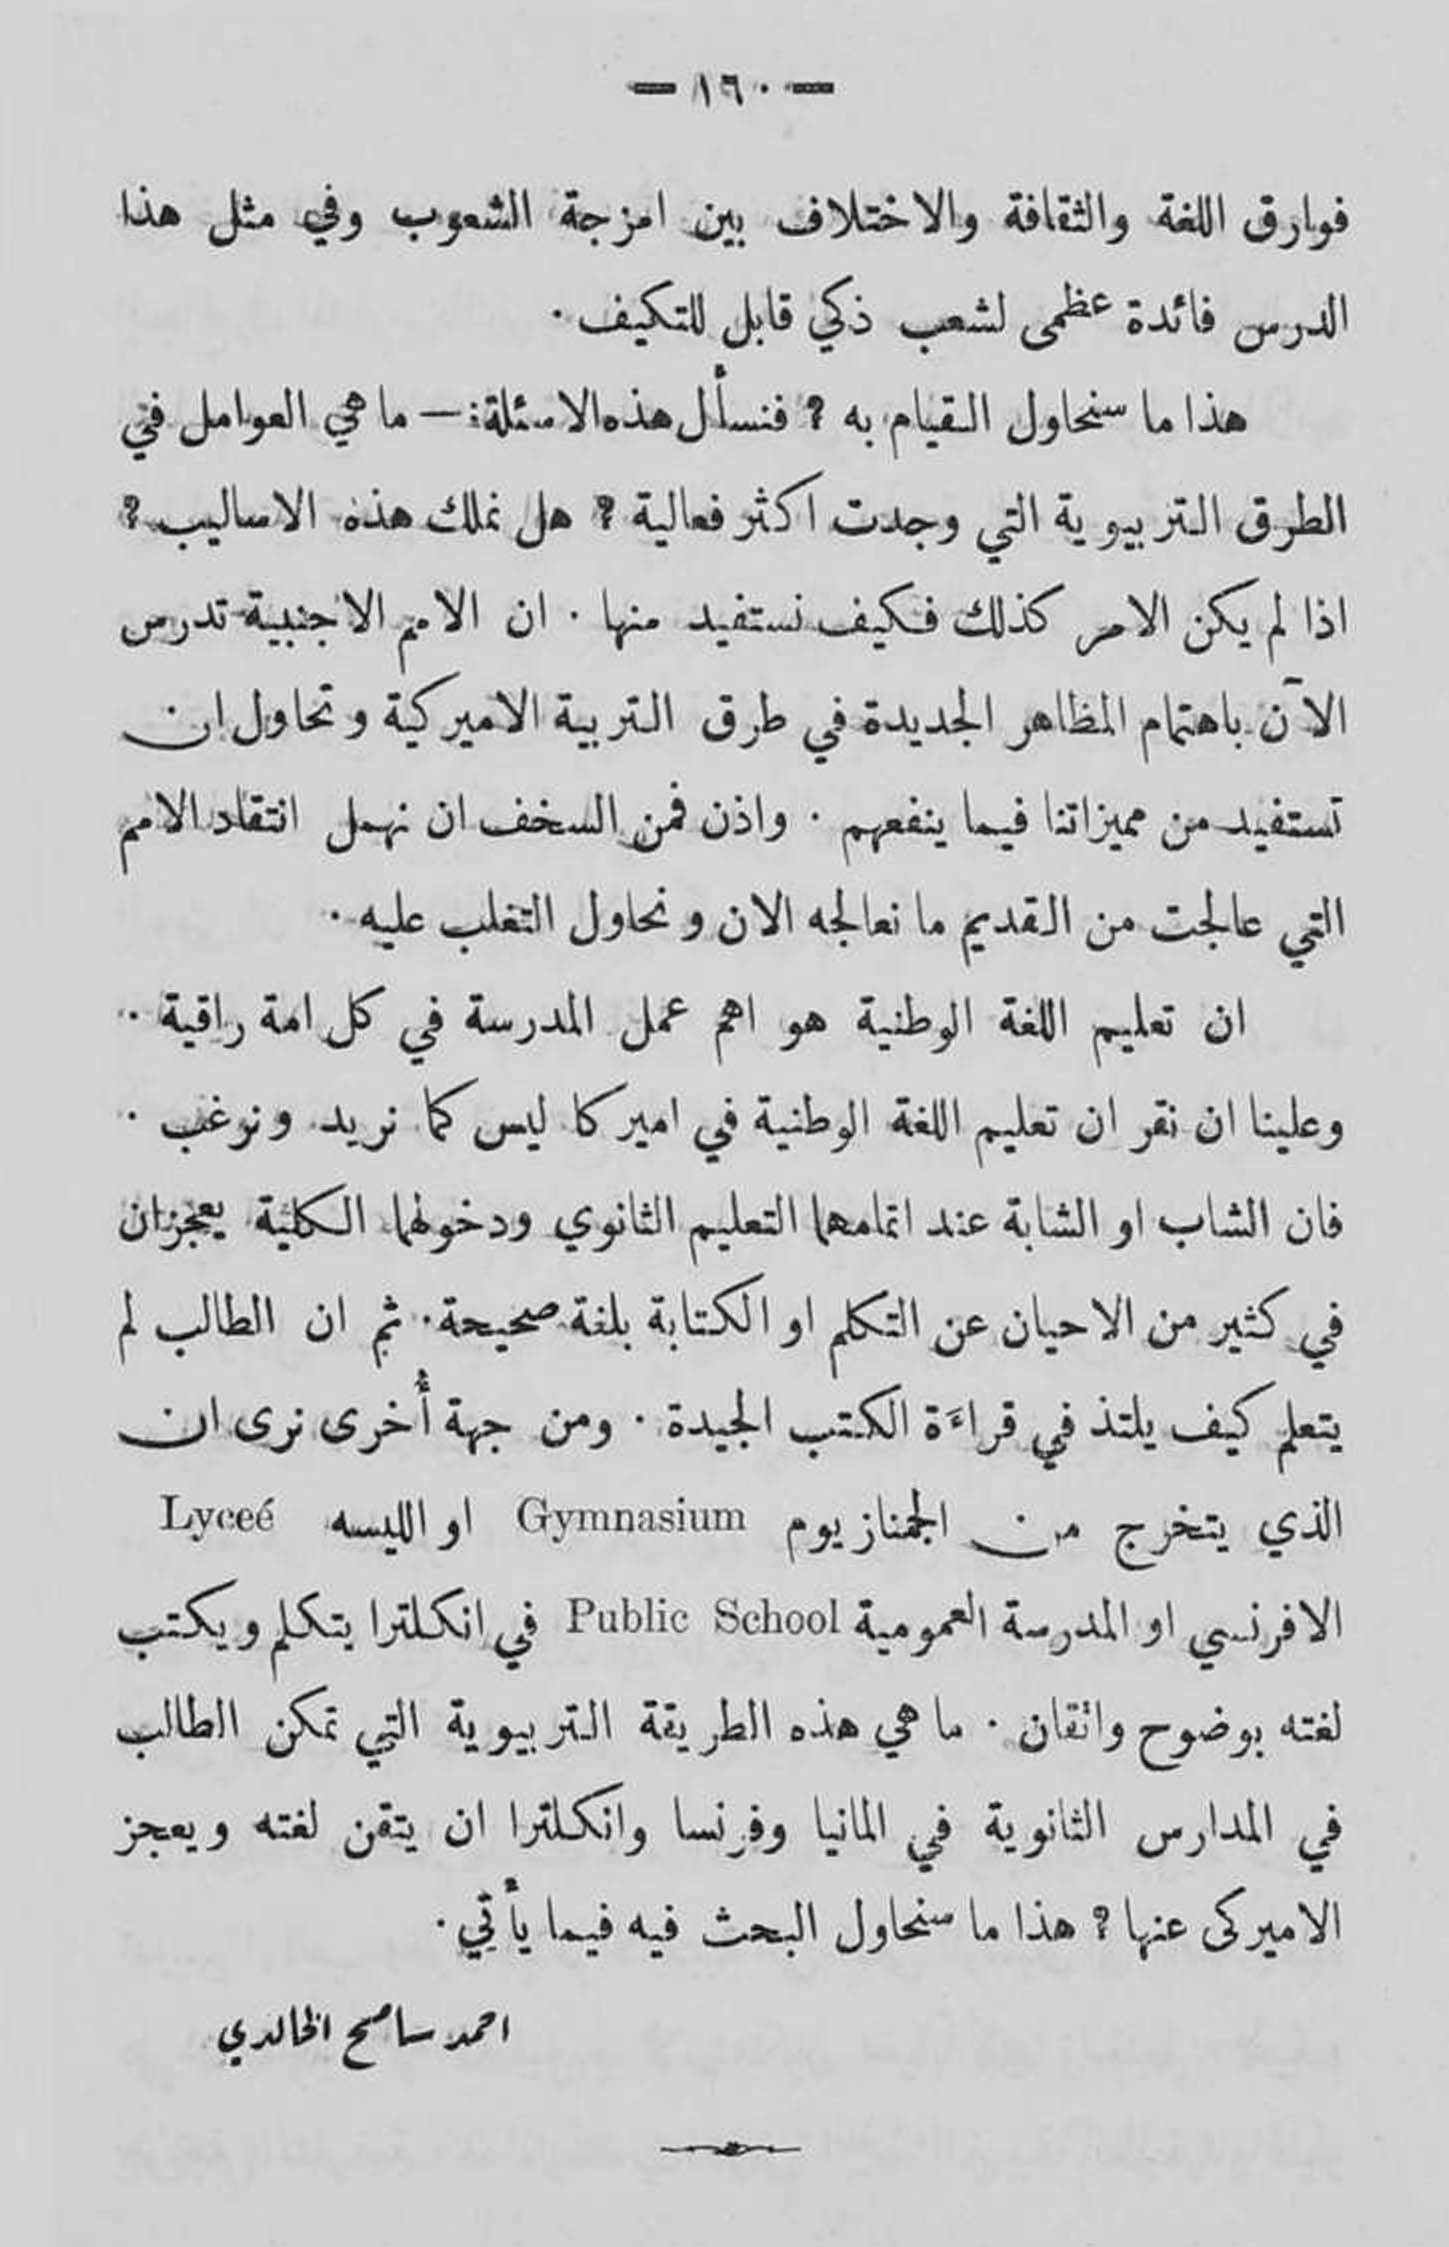 — ١٦٠ —
فوارق اللغة والثقافة والاختلاف بين امزجة الشعوب وفي مثل هذا
الدرس فائدة عظمى لشعب ذكي قابل للتكيف ٠
هذا ما سنحاول القيام به ؟ فنسأل هذه الاسئلة : — ما هي العوامل في
الطرق التربيوية التي وجدت اكثر فعالية ؟ هل نملك هذه الاساليب ؟
اذا لم يكن الامر كذلك فكيف نستفيد منها ٠ ان الامم الاجنبية تدرس
الآن باهتمام المظاهر الجديدة في طرق التربية الاميركية وتحاول ان
تستفيد من مميزاتنا فيما ينفعهم ٠ واذن فمن السخف ان نهمل انتقاد الامم
التي عالجت من القديم ما نعالجه الان ونحاول التغلب عليه ٠
ان تعليم اللغة الوطنية هو اهم عمل المدرسة في كل امة راقية ٠
وعلينا ان نقر ان تعليم اللغة الوطنية في اميركا ليس كما نريد ونرغب ٠
فان الشاب او الشابة عند اتمامهما التعليم الثانوي ودخولهما الكلية يعجزان
في كثير من الاحيان عن التكلم او الكتابة بلغة صحيحة ٠ ثم ان الطالب لم
يتعلم كيف يلتذ في قراءَة الكتب الجيدة ٠ ومن جهة أُخرى نرى ان
الذي يتخرج من الجمنازيوم Gymnasium او الليسه Lyceé
الافرنسي او المدرسة العمومية Public School في انكلترا يتكلم ويكتب
لغته بوضوح واتقان ٠ ما هي هذه الطريقة التربيوية التي تمكن الطالب
في المدارس الثانوية في المانيا وفرنسا وانكلترا ان يتقن لغته ويعجز
الاميركى عنها ؟ هذا ما سنحاول البحث فيه فيما يأتي ٠
احمد سامح الخالدي